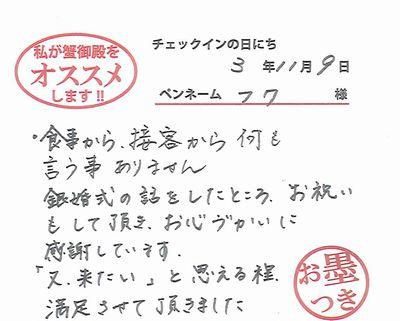 私が蟹御殿を
オススメ
します!!
チェックインの日にち
3 年 11 月 9 日
ペンネーム フワ 様
・食事から、接客から 何も
言う事 ありません
銀婚式の話をしたところ、お祝い
もして頂き、お心づかいに
感謝しています.
「又、来たい」と思える程、
満足させて頂きました
お墨
つき